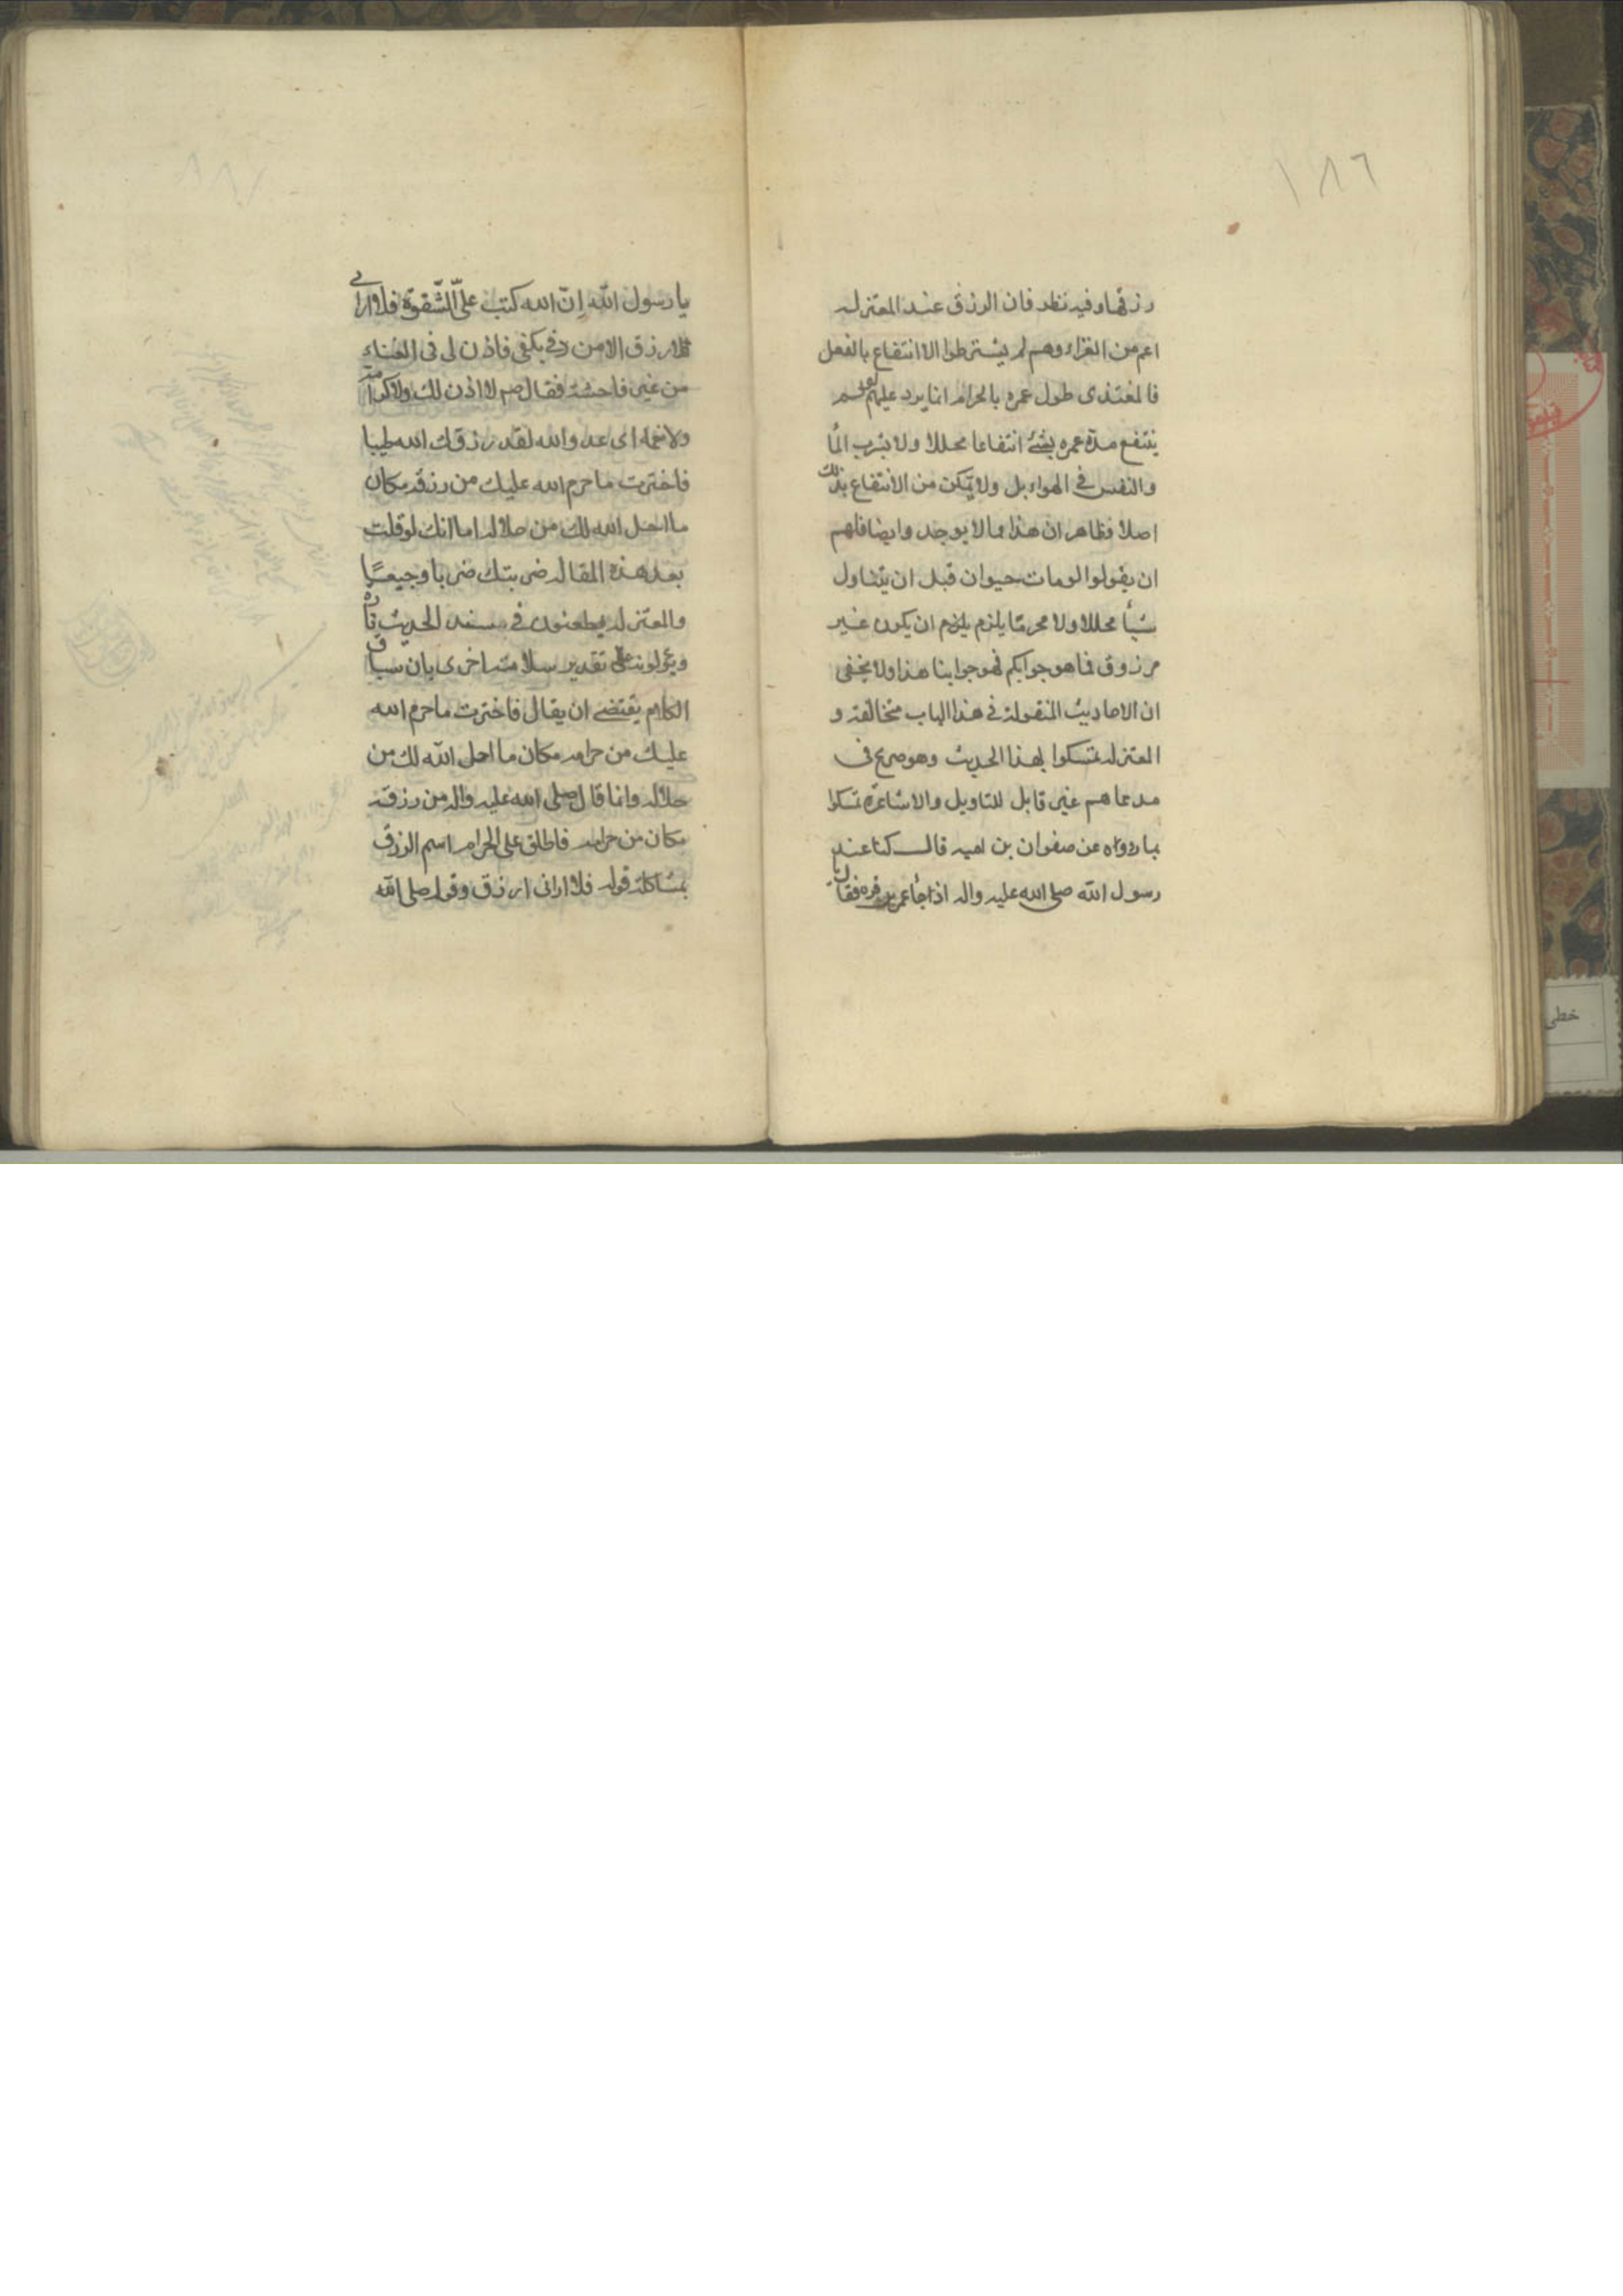 ١٨٦
رزقها وفيه نظر فان الرزق عند المعتزله
اعم من الغذاء وهم لم يشترطوا الا الانتفاع بالفعل
فالمغتذى طول عمره بالحرام انما يرد عليهم لو لم
ينتفع مدة عمره بشئ انتفاعا محللا ولا بشرب الما
والنفس فى الهواء بل ولا تمكن من الانتفاع بذلك
اصلا وظاهر ان هذا مما لا يوجد وايضا فلهم
ان يقولوا لو مات حيوان قبل ان يتناول
شيأ محللا ولا محرما يلزم يلزم ان يكون غير
مرزوق فما هو جوابكم فهو جوابنا هذا ولا يخفى
ان الاحاديث المنقولة فى هذا الباب متخالفة و
المعتزله تمسكوا بهذا الحديث وهو صريح فى
مدعاهم غير قابل للتاويل والاشاعرة تمسكوا
بما رواه عن صفوان بن اميه قال كنا عند
رسول الله صلى الله عليه واله اذا جأ عمر بن قره فقال
يا رسول الله اِنّ الله كتب علىّ الشّقوة فلا ارانى
ارزق الا من دفى بكفى فاذن لى فى الغناء
من غير فاحشة فقال صم لا اذن لك ولا كرامة
ولا نعمة اى عد والله لقد رزقك الله طيبا
فاخترت ما حرم الله عليك من رزقه مكان
ما احل الله لك من حلاله اما انك لو قلت
بعد هذه المقاله ضربتك ضربا وجيعًا
والمعتزله يطعنون فى سند الحديث تارة
ويؤولونه على تقدير سلامته اخرى بان سياق
الكلام يقتضى ان يقال فاخترت ما حرم الله
عليك من حرامه مكان ما احل الله لك من
حلاله وانما قال صلى الله عليه واله من رزقه
مكان من حرامه فاطلق على الحرام اسم الرزق
بمشاكلة قوله فلا ارانى ارزق وقوله صلى الله
خطى